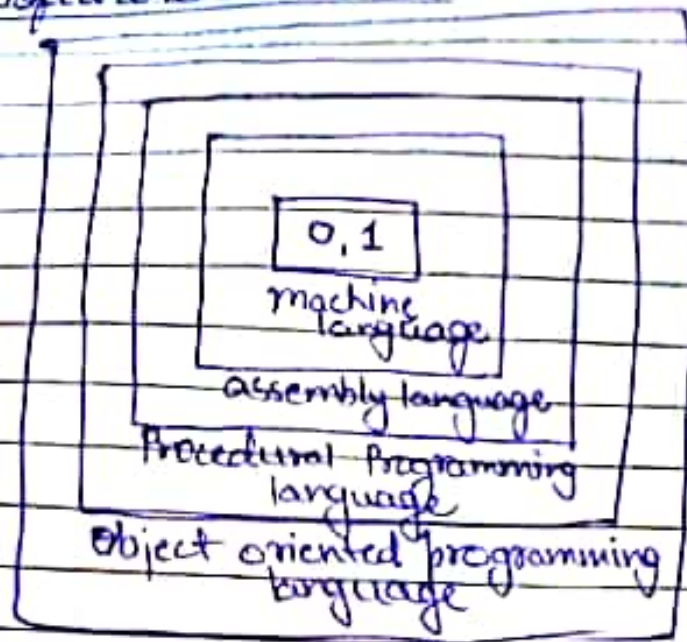 0, 1
machine
language
assembly language
Procedural Programming
language
Object oriented programming
language